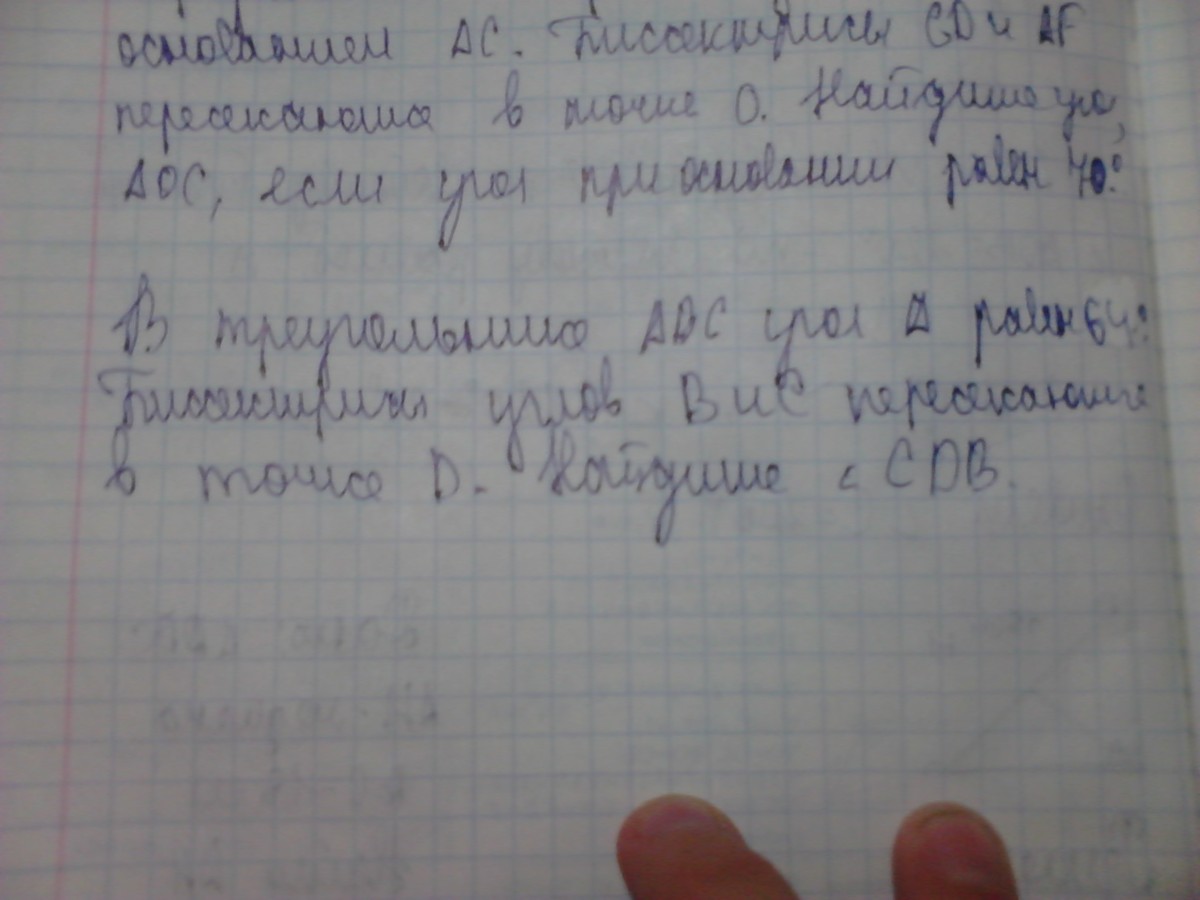 основанием АС. Биссектрисы CD и AF
пересекаются в точке О. Найдите угол
АОС, если угол при основании равен 70°.
В треугольнике АВС угол А равен 64°.
Биссектрисы углов В и С пересекаются
в точке D. Найдите ∠ CDB.